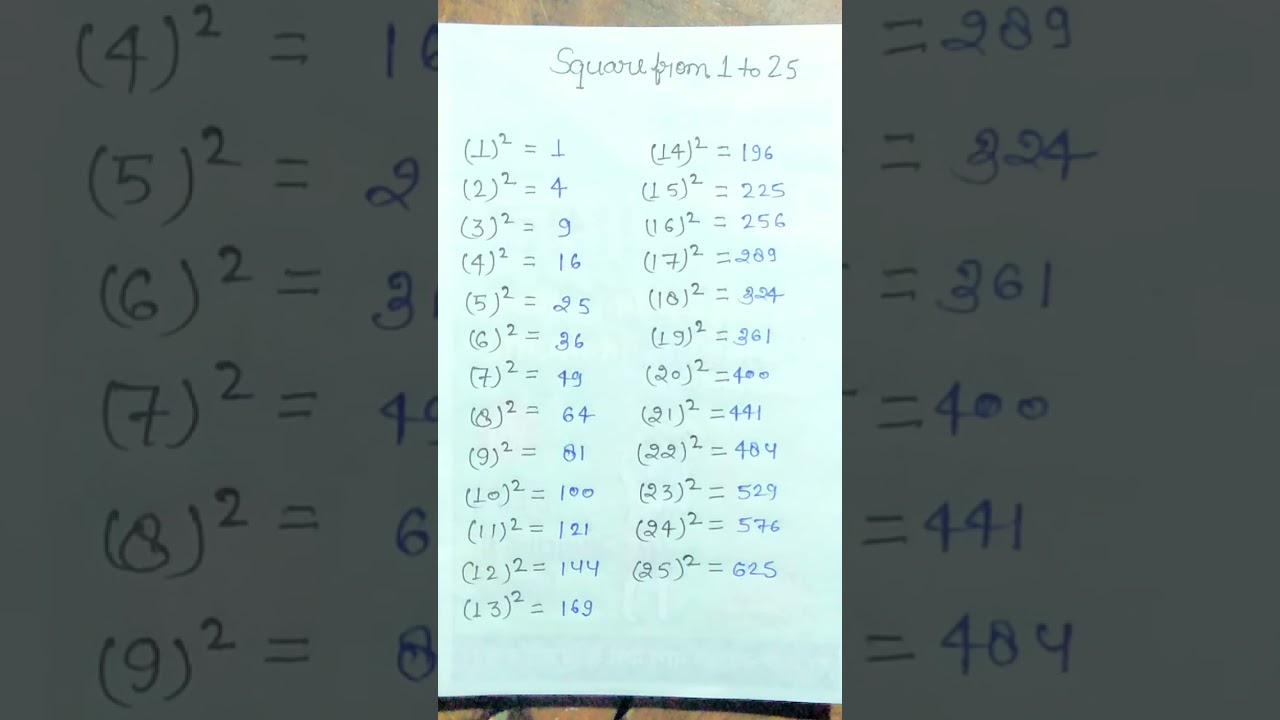 Square from 1 to 25
(1)² = 1
(2)² = 4
(3)² = 9
(4)² = 16
(5)² = 25
(6)² = 36
(7)² = 49
(8)² = 64
(9)² = 81
(10)² = 100
(11)² = 121
(12)² = 144
(13)² = 169
(14)² = 196
(15)² = 225
(16)² = 256
(17)² = 289
(18)² = 324
(19)² = 361
(20)² = 400
(21)² = 441
(22)² = 484
(23)² = 529
(24)² = 576
(25)² = 625